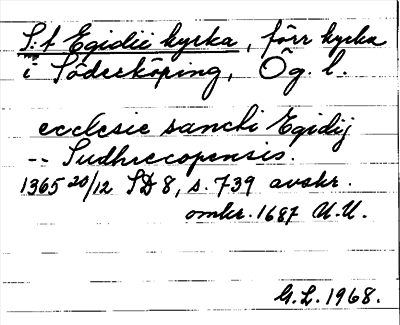 S:t Egidii kyrka, förr kyrka
i Söderköping, Ög. l.
ecclesie sancti Egidij
-- Sudhrecopensis.
1365 20/12 SD 8, s. 739 avskr.
omkr. 1687 U.U.
G.L. 1968.